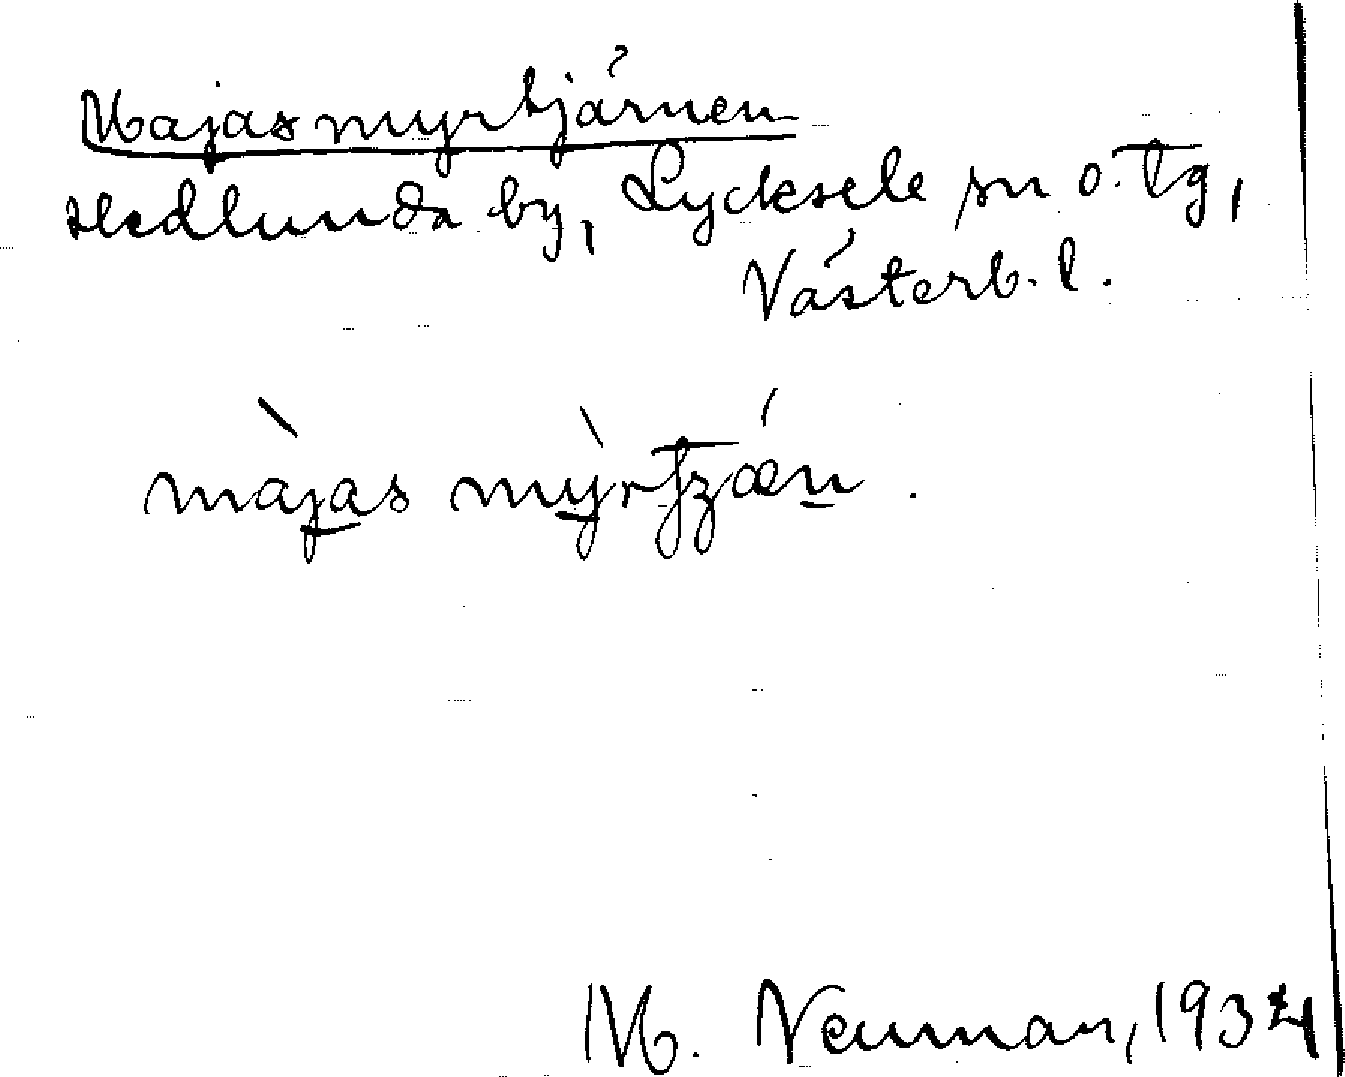 Majasmyrtjärnen
Hedlunda by, Lycksele sn o. tg,
Västerb. l.
màjas mỳrtȷʒǽn .
M. Neuman, 1934